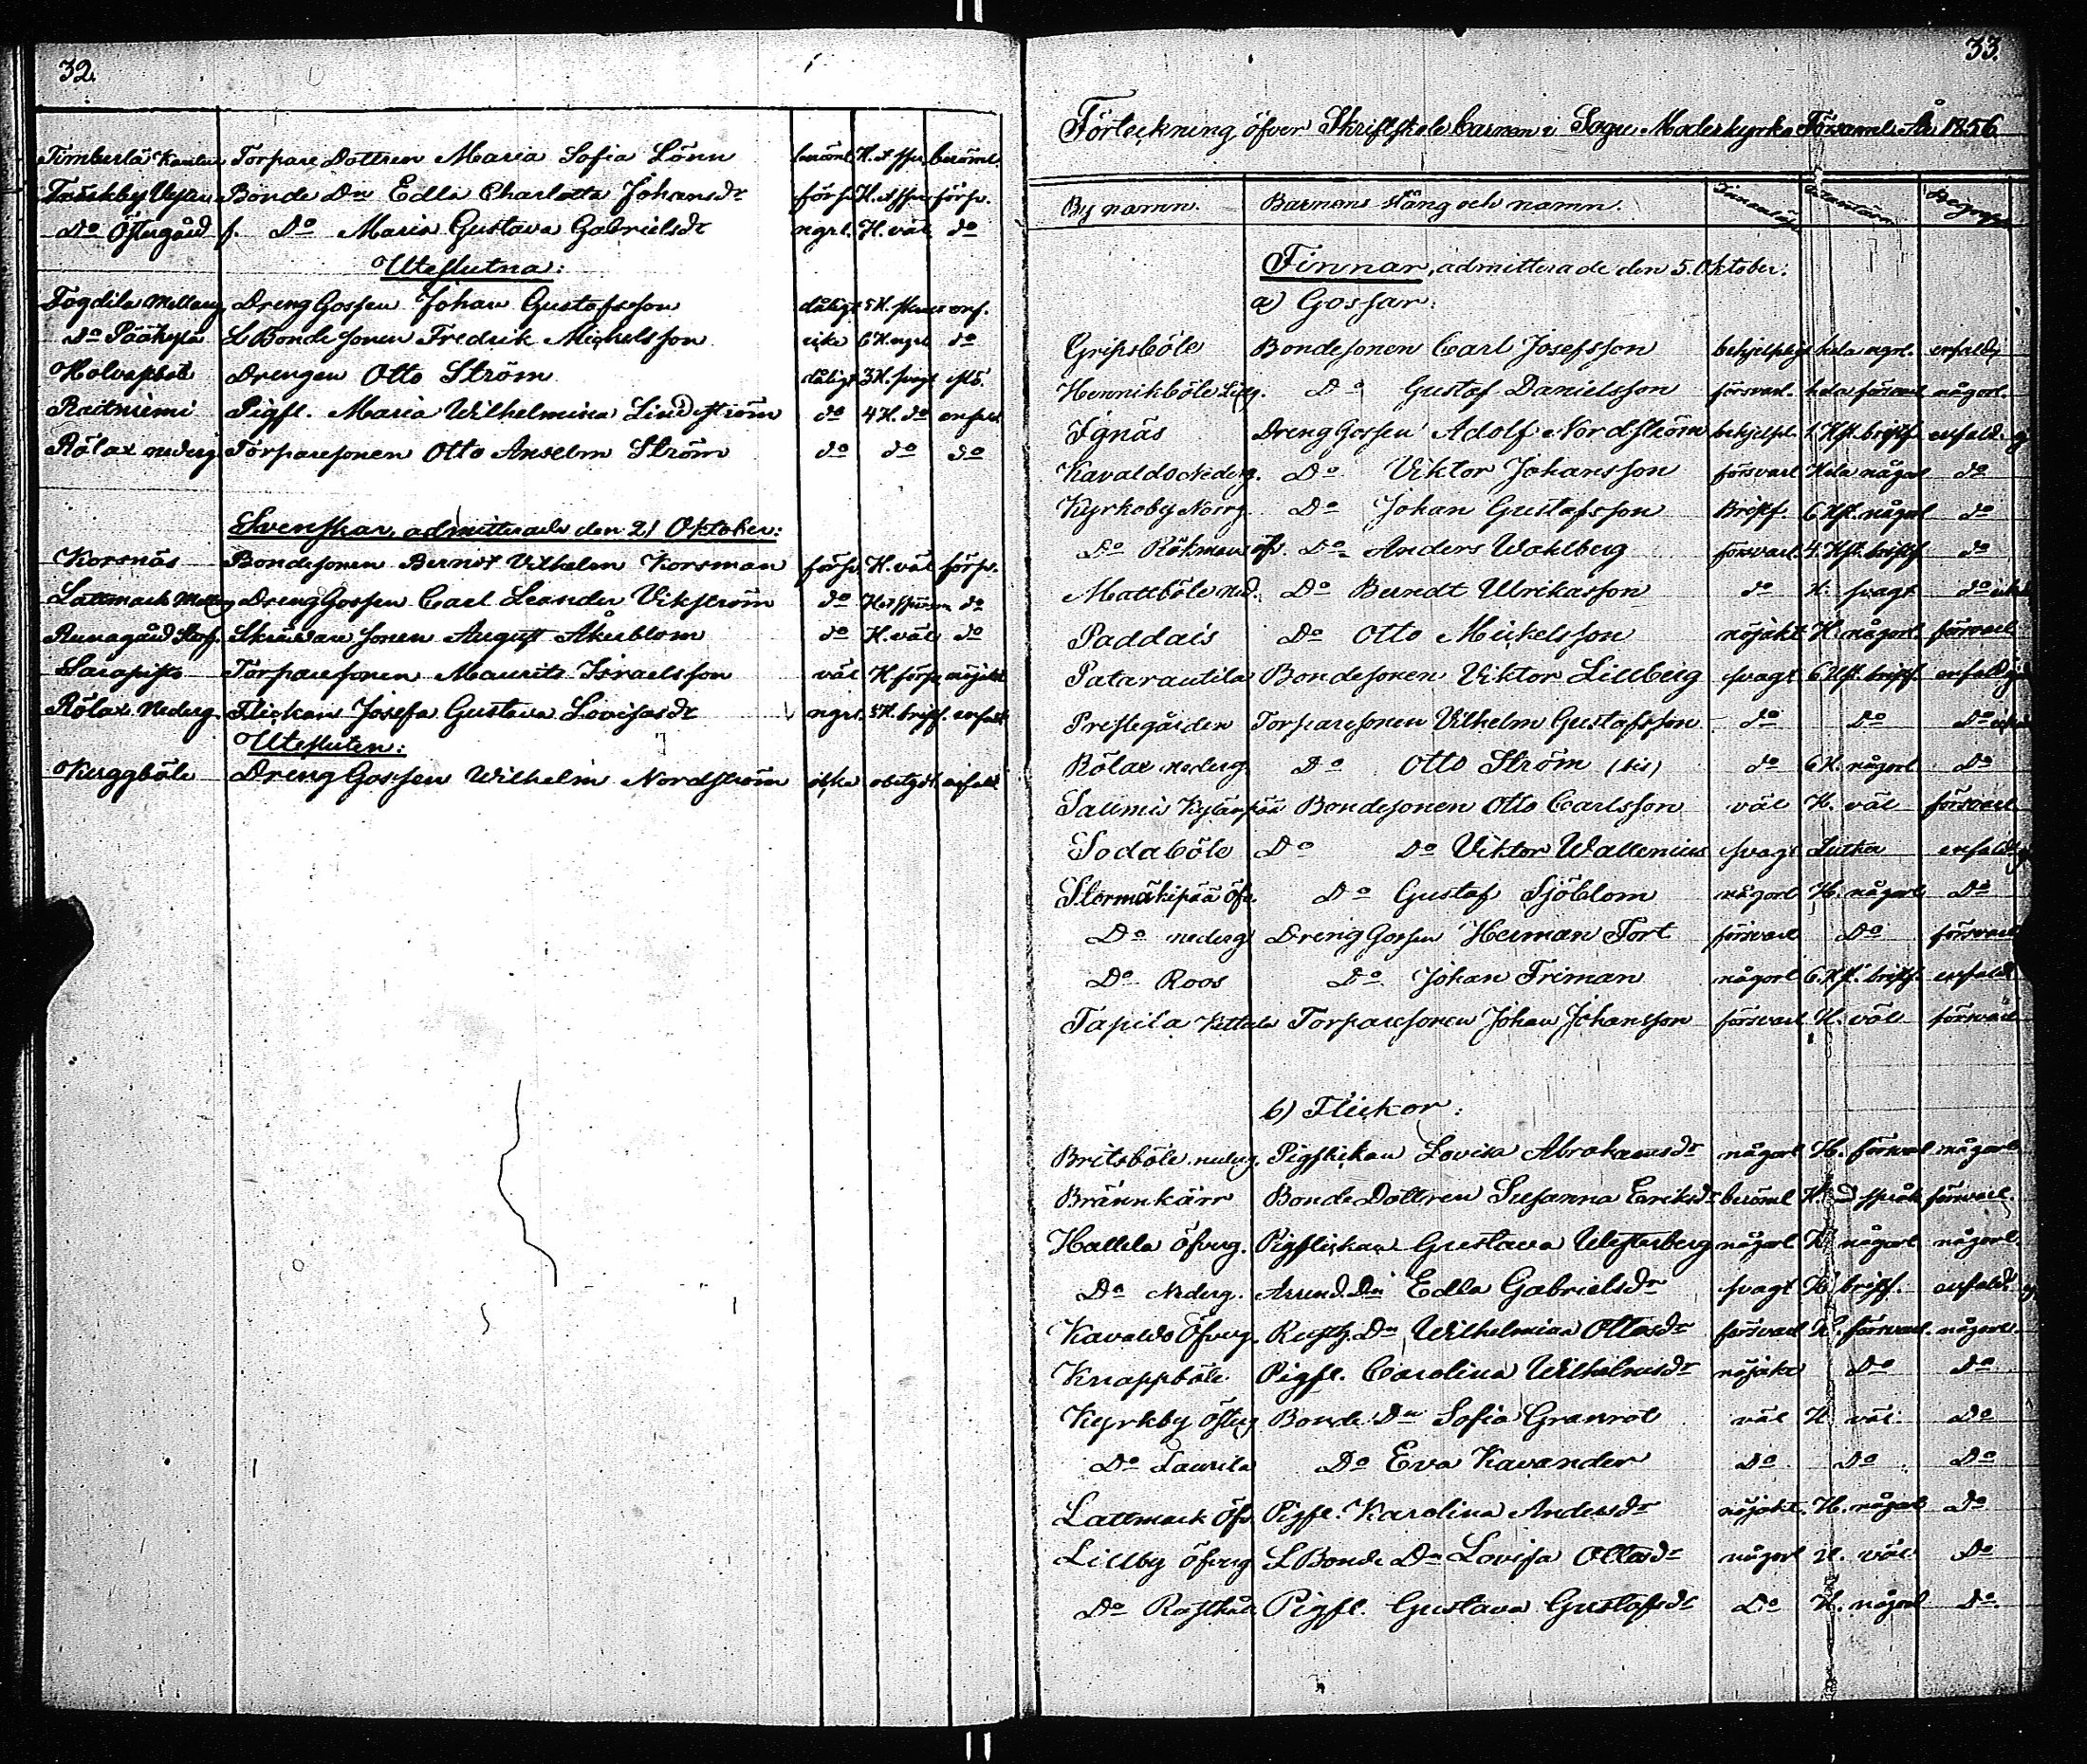 32.
Timberlä Torpare Dottren Maria Sofia Lönn beröml. H. beröml.
Bonde Dn Edla Charlotta Johansdr försv. försv.
Do Östugård f. Do Maria Gustava Gabrielsdr ngrl. H. väl do
Uteslutna:
Togdila Melleng Dreng Gossen Johan Gustafsson dåligt enf.
Do Pääkylä L Bonde sonen Fredrik Michelsson icke 6 H. ngrl do
Drengen Otto Ström dåligt 3 H. svagt
Raitniemi Pigfl. Maria Wilhelmina Lindström do 4 H. do
Rölax nederg Torparesonen Otto Anselm Ström do do do
Svenskar, admitterade den 21 Oktober:
Korsnäs Bondesonen Berndt Vilhelm Korsman försv. H. väl försv.
Lattmack Melleng Dreng Gossen Carl Leander Vikström do do
Runagård Skräddare sonen August Åkerblom do H. väl do
Sarapisto Torparesonen Maurits Israelsson väl H. försv nöjakt
Rölax Nederg. Flickan Josefa Gustava Lovisasdr ngrl. 5 H. bristf. enfald
Utesluten:
Kuggböle Dreng Gossen Wilhelm Nordström icke obetydl. enfald
33.
Förteckning öfver Skriftskole barnen i Sagu Moderkyrko Församl. År 1856
By namn. Barnens stång och namn. Innanläs Utantläsn Begrepp
Finnar, admitterade den 5. Oktober:
a) Gossar:
Gripsböle Bondesonen Carl Josefsson behjelpligt hela ngrl. enfaldig
Hennikböle Do Gustaf Danielsson försvarl. hela försvarl någorl.
Ignäs Dreng Gossen Adolf Nordström behjelpl. 1 Hst. bristf. enfaldg
Kavaldo Nederg. Do Viktor Johansson försvarl Hela någorl do
Kyrkoby Norrg Do Johan Gustafsson Bristf. 6 Hst. någorl do
Do Böhmens öfv. Do Anders Wahlberg försvarl. 4. Hst. bristf do
Mattböle Ned. Do Berndt Ulrikasson do H. svagt do
Paddais Do Otto Mickelsson nöjakt H. någorl försvarl
Patarautila Bondesonen Viktor Lillberg svagt 6 Hst. bristf. enfaldg
Prestegården Torparesonen Vilhelm Gustafsson do Do Do
Rölax nederg Do Otto Ström (bis) do 6 H. någorl Do
Salmis Kylänpää Bondesonen Otto Carlsson väl H. väl försvarl
Sodaböle Do Do Viktor Wallenius svagt Luther enfaldig
Stormäkipää Öfv. Do Gustaf Sjöblom någorl H. någorl Do
Do nederg Dreng Gossen Herman Fort försvarl Do försvarl
Do Roos Do Johan Friman någorl 6 Hst. bristf. enfald
Tapila Kettala Torparesonen Johan Johansson försvarl H. väl försvarl
b) Flickor:
Britsböle nederg. Pigflickan Lovisa Abrahamsdr någorl H. försvarl någorl
Brännkärr Bonde Dottren Susanna Eriksdr beröml H. med språk försvarl.
Hallela Öfverg. Pigflickan Gustava Westerberg någorl H. någorl någorl.
Do Nederg. Arrend. Dn Edla Gabrielsdr svagt H. bristf. enfald.
Kavaldo Öfverg. Rusth. Dn Wilhelmina Ottosdr försvarl H. försvarl. någorl.
Knappböle Pigfl. Carolina Wilhelmsdr nöjakt Do Do
Kyrkby Östug Bonde Dn Sofia Granrot väl H väl Do
Do Laurila Do Eva Kavander Do Do Do
Lattmack Öfv. Pigfl. Karolina Andersdr nöjakt. H. någorl Do
Lillby Öfverg L Bonde Dn Lovisa Ottosdr någorl H. väl Do
Do Pigfl. Gustava Gustafsdr Do H. någorl Do.